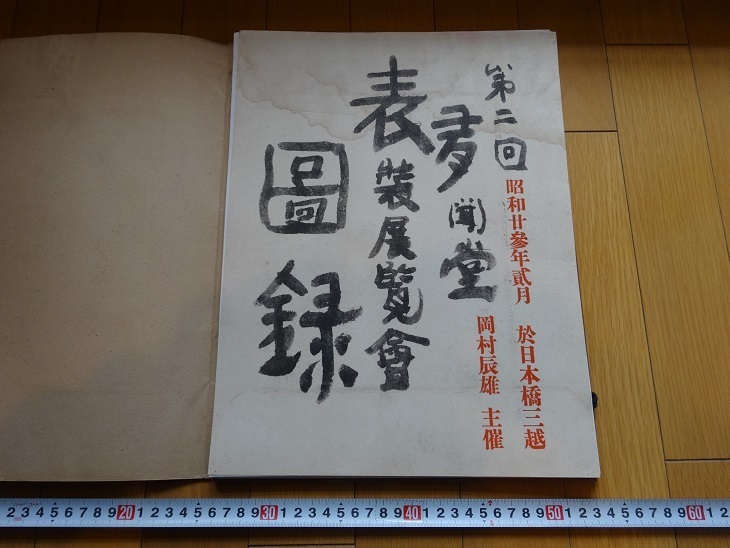 第二回
昭和廿參年貳月 於日本橋三越
夛聞堂
岡村辰雄 主催
表装展覧會
圖録
2 3 4 5 6 7 8 9 20 1 2 3 4 5 6 7 8 9 30 1 2 3 4 5 6 7 8 9 40 1 2 3 4 5 6 7 8 9 50 1 2 3 4 5 6 7 8 9 60 1 2